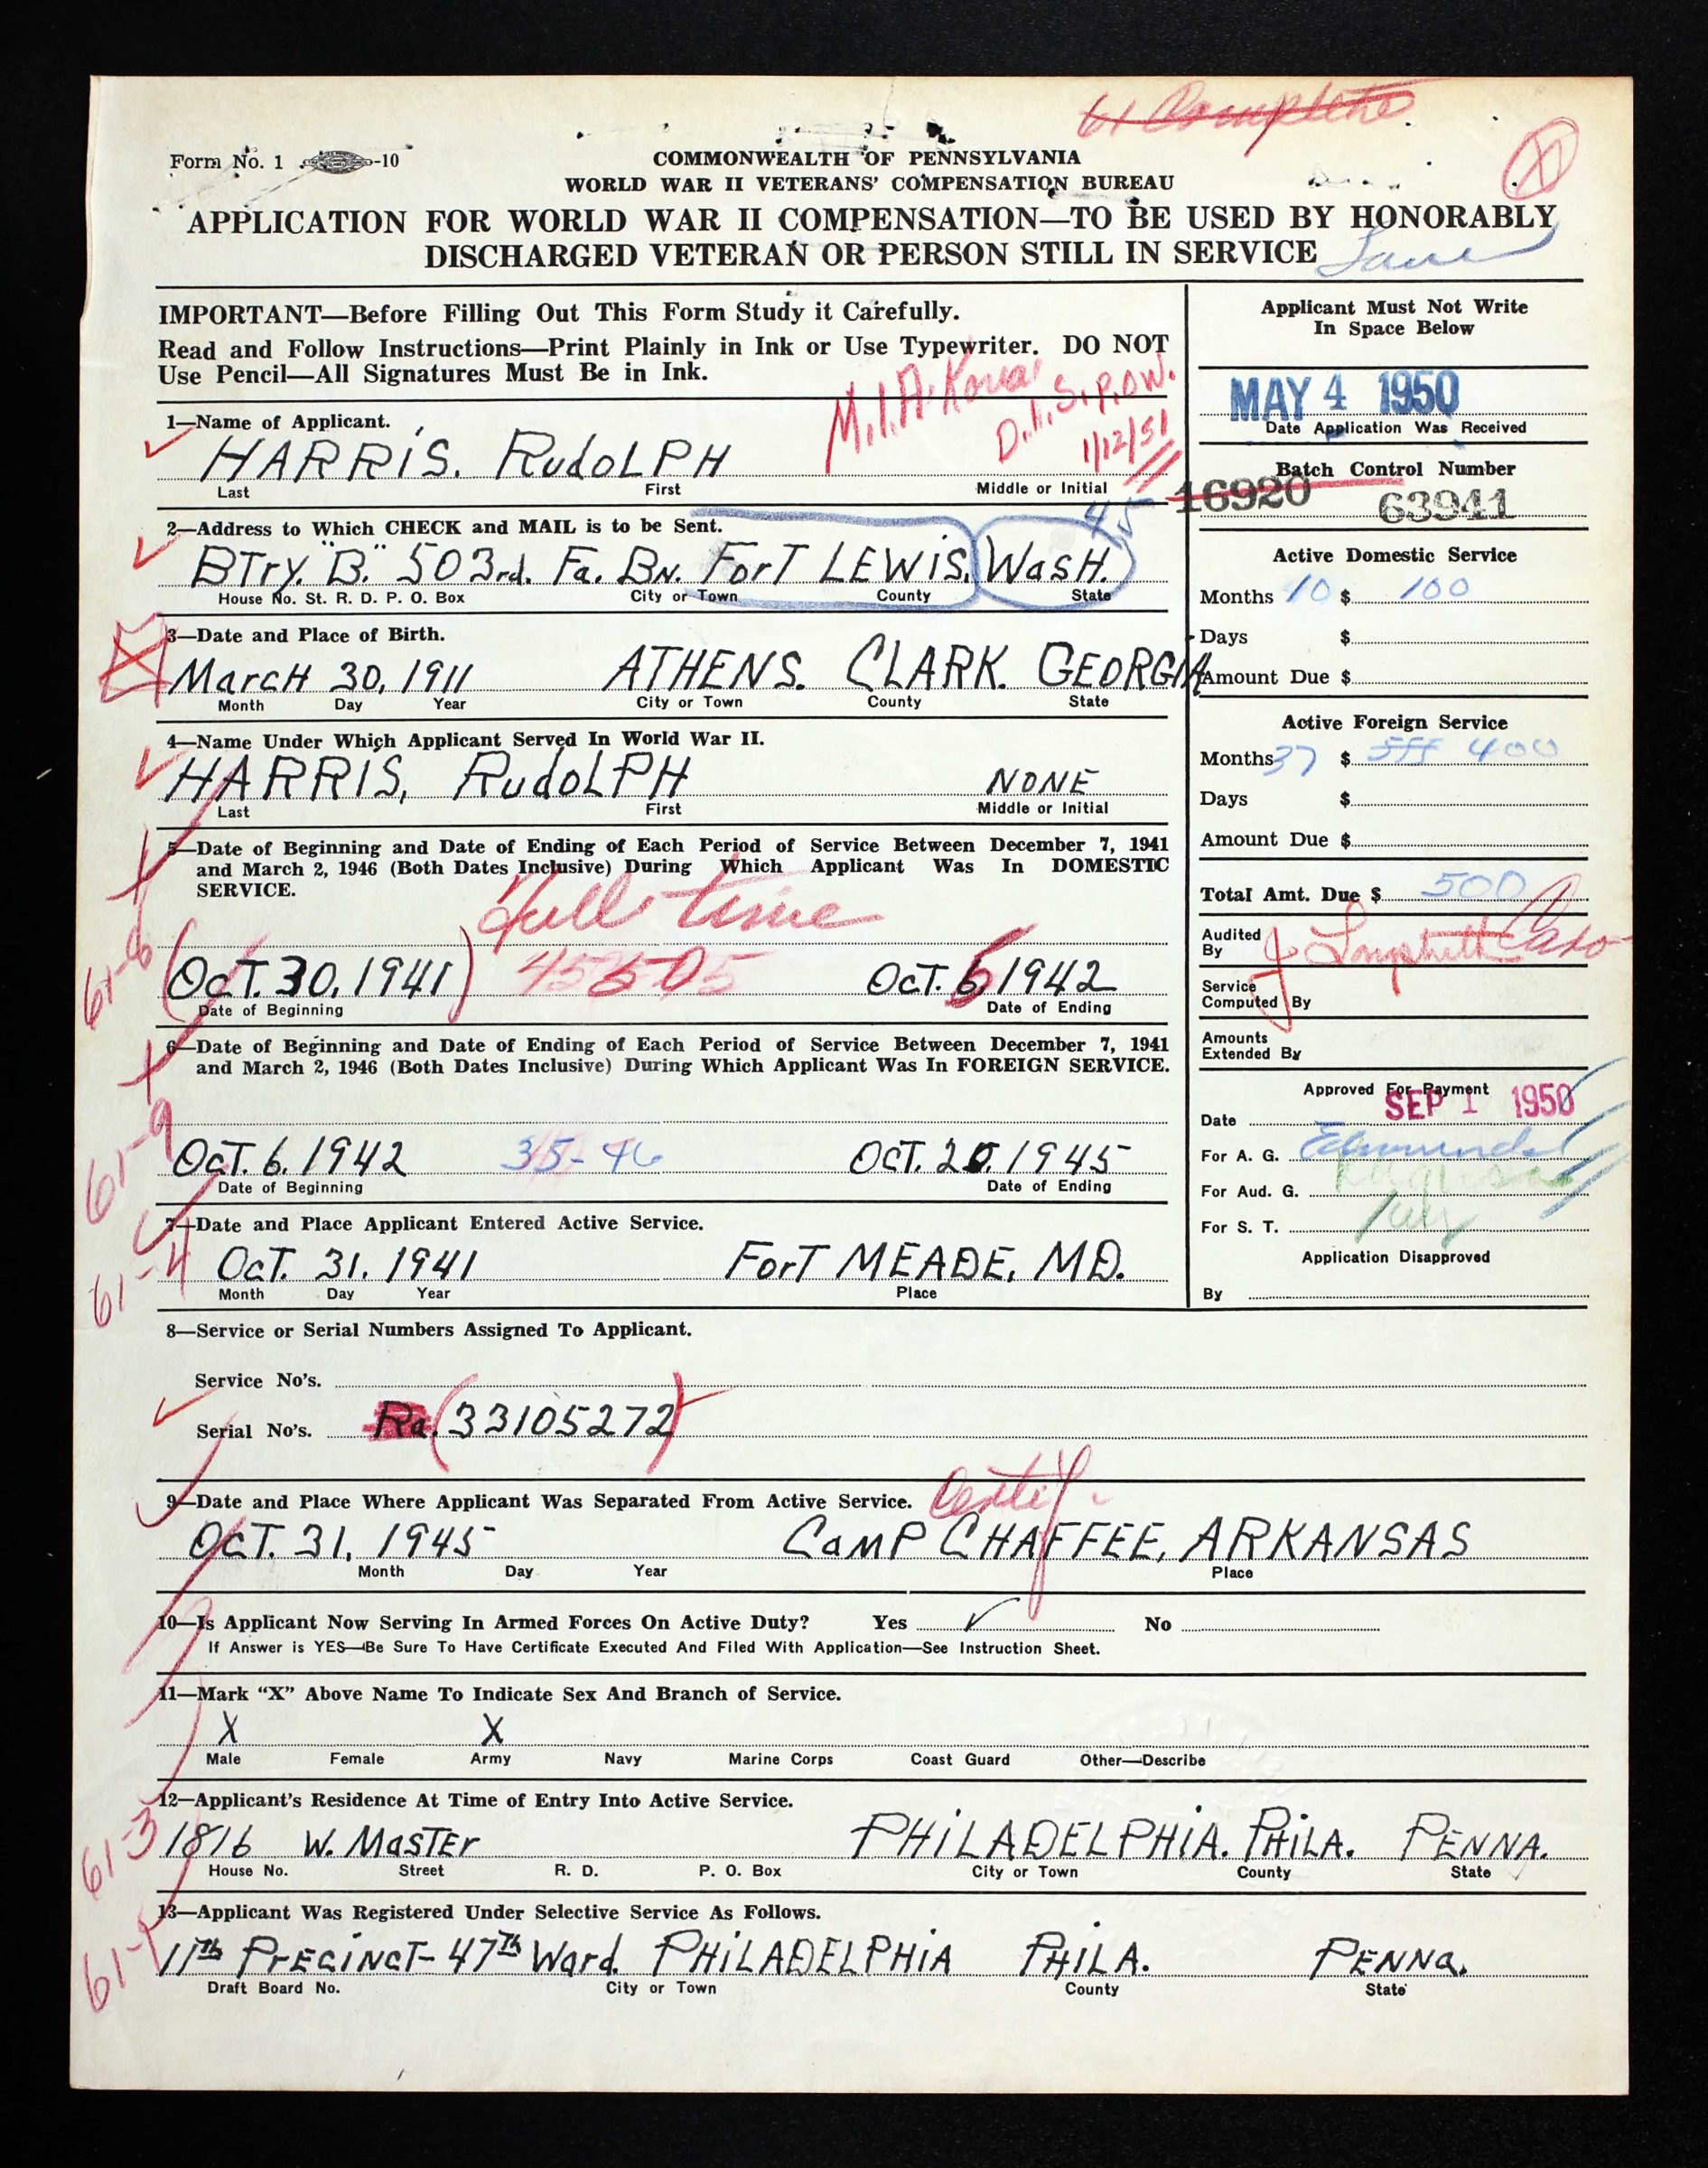 61 Complete
Form No. 1 -10
COMMONWEALTH OF PENNSYLVANIA
WORLD WAR II VETERANS' COMPENSATION BUREAU
APPLICATION FOR WORLD WAR II COMPENSATION—TO BE USED BY HONORABLY
DISCHARGED VETERAN OR PERSON STILL IN SERVICE
IMPORTANT—Before Filling Out This Form Study it Carefully.
Read and Follow Instructions—Print Plainly in Ink or Use Typewriter. DO NOT
Use Pencil—All Signatures Must Be in Ink.
M.I.A. Korea
D.I.S. P.O.W.
1/12/51
1—Name of Applicant.
HARRIS. RudoLPH
Last First Middle or Initial
2—Address to Which CHECK and MAIL is to be Sent.
45
BTry. "B." 503rd. Fa. BN. ForT LEWIS, WasH.
House No. St. R. D. P. O. Box City or Town County State
3—Date and Place of Birth.
MarcH 30, 1911 ATHENS. CLARK. GEORGIA
Month Day Year City or Town County State
4—Name Under Which Applicant Served In World War II.
HARRIS, RudoLPH NONE
Last First Middle or Initial
5—Date of Beginning and Date of Ending of Each Period of Service Between December 7, 1941
and March 2, 1946 (Both Dates Inclusive) During Which Applicant Was In DOMESTIC
SERVICE.
Full time
61-6 (OcT. 30, 1941) 45505 OcT. 6, 1942
Date of Beginning Date of Ending
6—Date of Beginning and Date of Ending of Each Period of Service Between December 7, 1941
and March 2, 1946 (Both Dates Inclusive) During Which Applicant Was In FOREIGN SERVICE.
61-9
OcT. 6. 1942 35-46 OcT. 20. 1945
Date of Beginning Date of Ending
7—Date and Place Applicant Entered Active Service.
61-4 OcT. 31, 1941 ForT MEADE, MD.
Month Day Year Place
Applicant Must Not Write
In Space Below
MAY 4 1950
Date Application Was Received
Batch Control Number
16920 63941
Active Domestic Service
Months 10 $ 100
Days $
Amount Due $
Active Foreign Service
Months 37 $ 400
Days $
Amount Due $
Total Amt. Due $ 500
Audited
By
Service
Computed By
Amounts
Extended By
Approved For Payment
Date SEP 1 1950
For A. G.
For Aud. G.
For S. T.
Application Disapproved
By
8—Service or Serial Numbers Assigned To Applicant.
Service No's.
Serial No's. Ra. (33105272)
9—Date and Place Where Applicant Was Separated From Active Service.
Certif.
OcT. 31, 1945 CaMP CHAFFEE, ARKANSAS
Month Day Year Place
10—Is Applicant Now Serving In Armed Forces On Active Duty? Yes ✓ No
If Answer is YES—Be Sure To Have Certificate Executed And Filed With Application—See Instruction Sheet.
11—Mark "X" Above Name To Indicate Sex And Branch of Service.
X X
Male Female Army Navy Marine Corps Coast Guard Other—Describe
12—Applicant's Residence At Time of Entry Into Active Service.
61-3 1816 W. MasTEr PHILADELPHIA. PHILA. PENNA.
House No. Street R. D. P. O. Box City or Town County State
13—Applicant Was Registered Under Selective Service As Follows.
11th PrECINcT-47th Ward. PHILADELPHIA PHILA. PENNa.
Draft Board No. City or Town County State